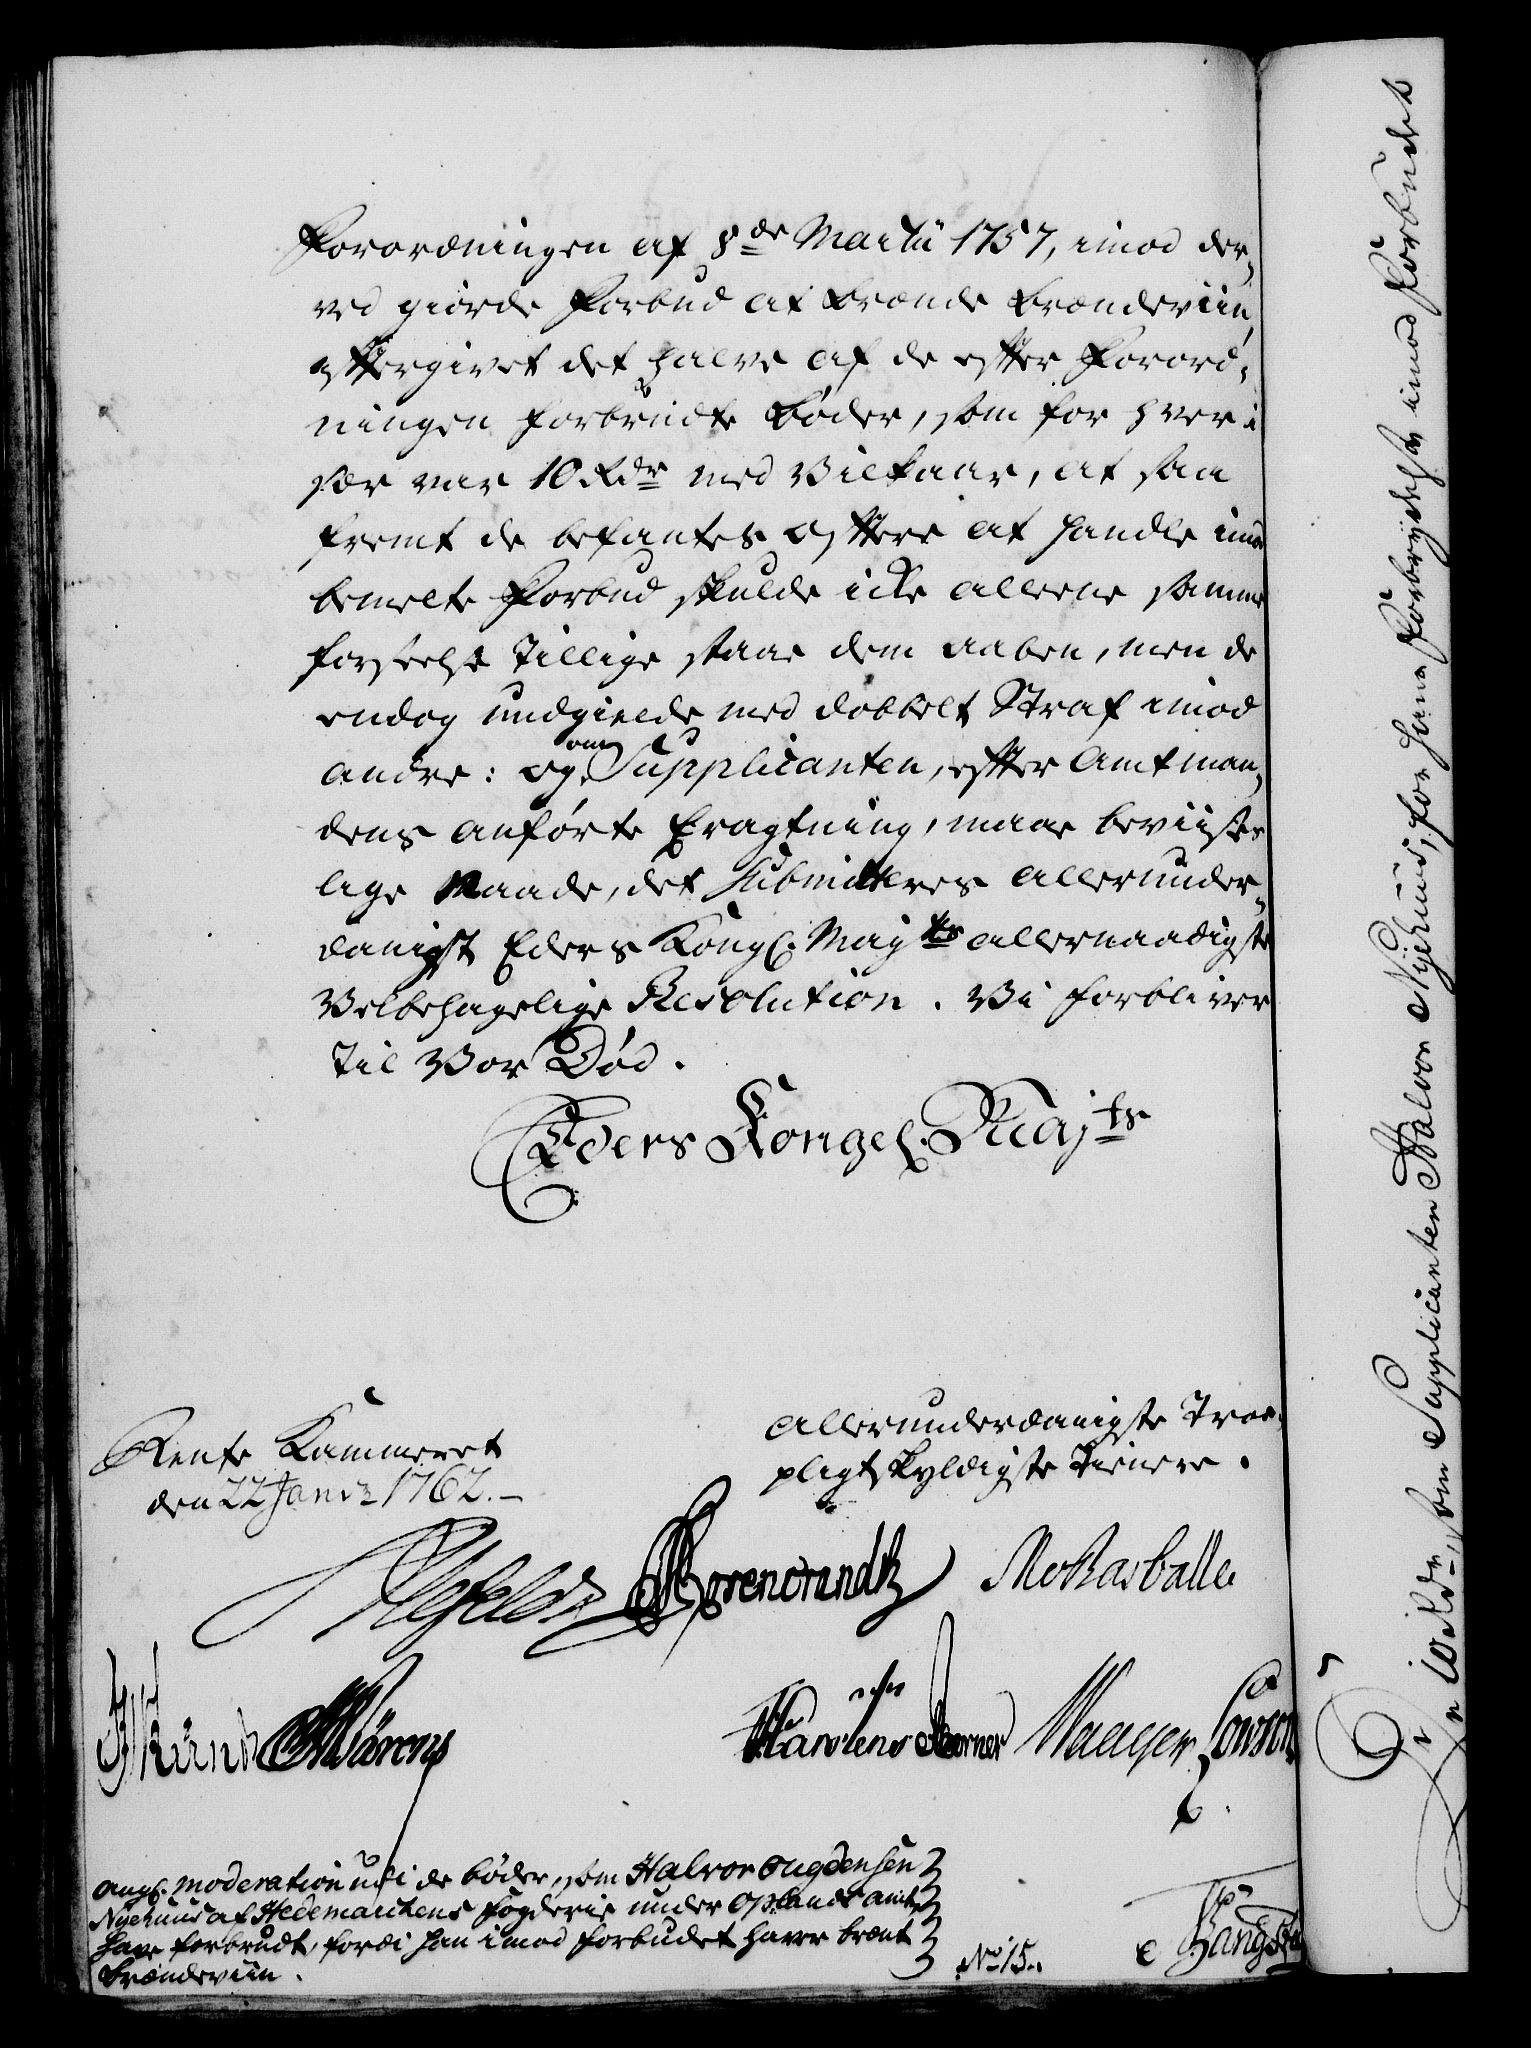 Forordningen af 8de Martii 1757, imod der„
ved giorde Forbud at brænde Brændeviin,
eftergivet det halve af de efter Forord„
ningen forbrudte Bøder, som for hver i
sær var 10 Rdr med Vilkaar, at saa
fremt de befantes oftere at handle imod
bemelte Forbud skulde icke alleene samme
forseelse tillige staae dem aaben, men de
endog undgielde med dobbelt Straf imod
andre: og om Supplicanten, efter Amtman„
dens anførte Eragtning, maae beviises
lige Naade, det submitteres allerunder„
danigst Eders Kongl. Mayts allernaadigste
Velbehagelige Resolution. Vi forbliver
til Vor Død.
Eders Kongel. Majts
allerunderdanigste Troe„
pligtskyldigste Tienere.
Rente Kammeret
den 22 Janr 1762.
Holfens
Waager
ang. moderation udi de bøder, som Halvor
Nyehuus af Hedemarkens Fogderie under Oplands amt,
have forbrudt, fordi han imod forbudet haver brænt
brændeviin.
No 15.
10 Rdr, som Supplicanten Halvor Nyehuus, for hans Forbrydelse imod Forbudet